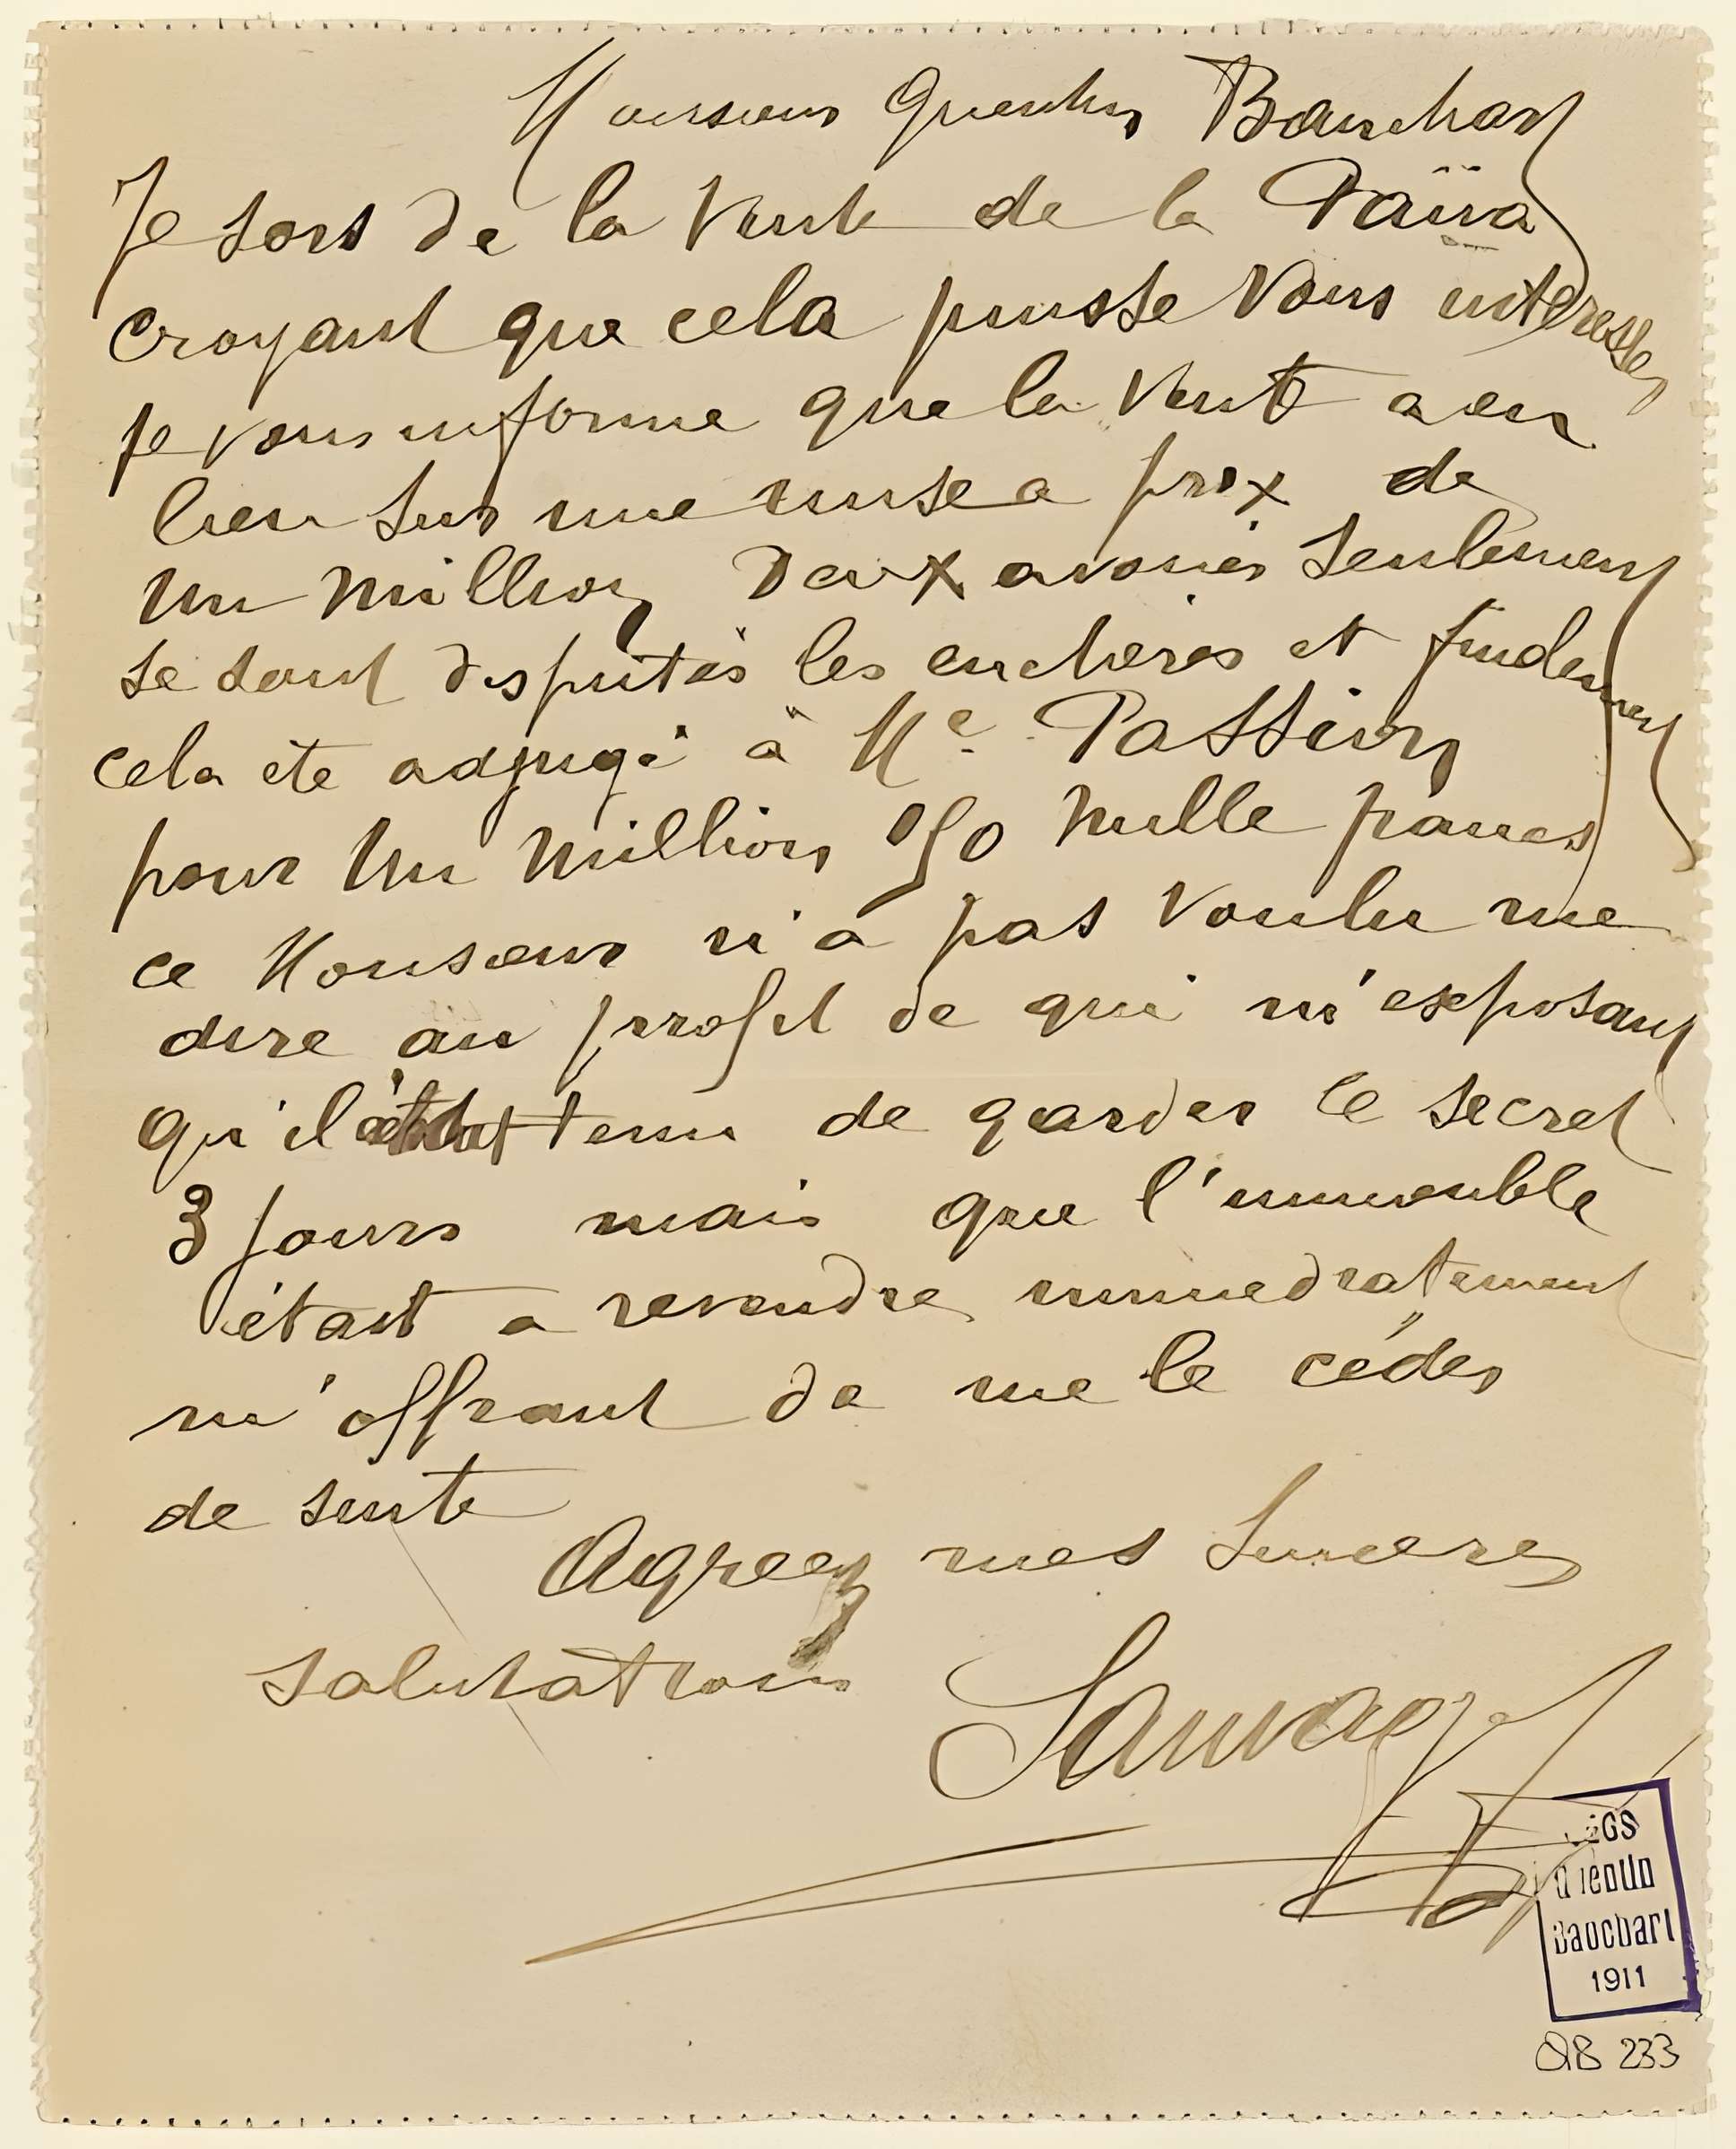 Monsieur Quentin Bauchart
Je sors de la vente de la Païva
croyant que cela puisse vous interesser
je vous informe que la vente a eu
lieu sur une mise a prix de
un million Deux avoués seulement
se sont disputés les enchères et finalement
cela été adjugé à Me Passion
pour un million 050 mille francs
ce Monsieur n'a pas voulu me
dire au profit de qui m'exposant
qu'il était tenu de garder le secret
3 jours mais que l'immeuble
était a revendre immediatement
m'offrant de me le céder
de suite
Agreez mes sinceres
salutations
Sauvage
LEGS
Quentin
Bauchart
1911
QB 233